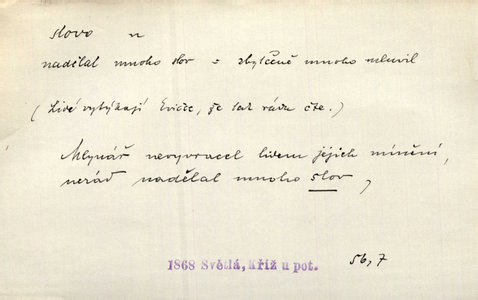 slovo n
nadělal mnoho slov = zbytečně mnoho mluvil
(Lidé vytýkají Evičce, že tak ráda čte.)
Mlynář nevyvracel lidem jejich mínění,
nerád nadělal mnoho slov,
1868 Světlá, Kříž u pot.
56,7